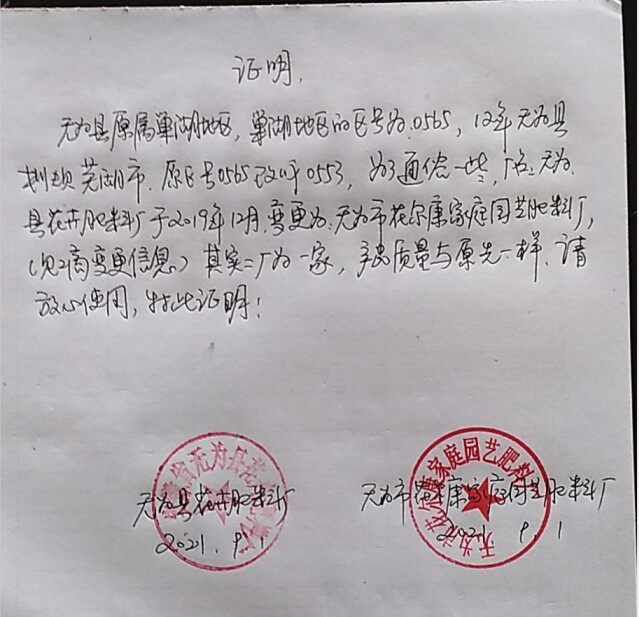 证明.
无为县原属巢湖地区, 巢湖地区的区号为.0565, 12年无为县
划规芜湖市. 原区号0565改叫0553, 为了通俗一些, 厂名:无为
县花卉肥料厂于2019年12月.变更为.无为市花尔康家庭园艺肥料厂,
(见工商变更信息。) 其实二厂为一家, 产品质量与原先一样. 请
放心使用, 特此证明!
无为县花卉肥料厂
无为市花尔康家庭园艺肥料厂
2021.9.1
2021. 9. 1
省无为县花
无为市花尔康家庭园艺肥料厂